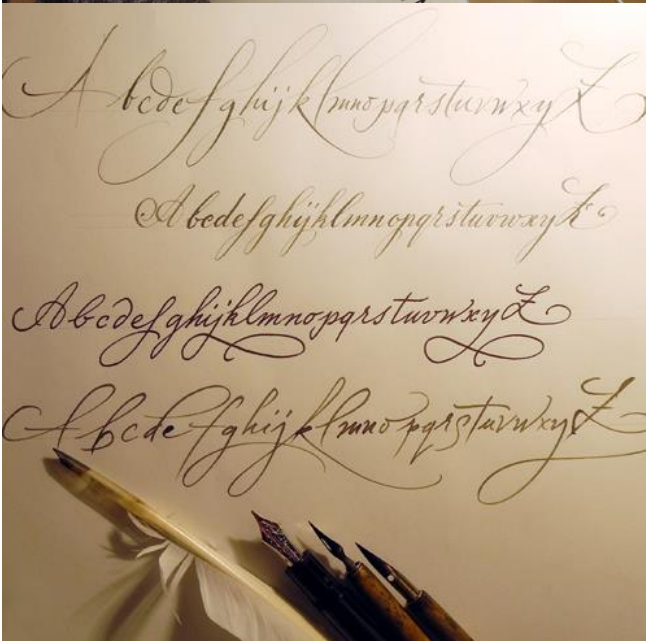 AbcdefghijklmnopqrstuvwxyZ
AbcdefghijklmnopqrstuvwxyZ
AbcdefghijklmnopqrstuvwxyZ
AbcdefghijklmnopqrstuvwxyZ